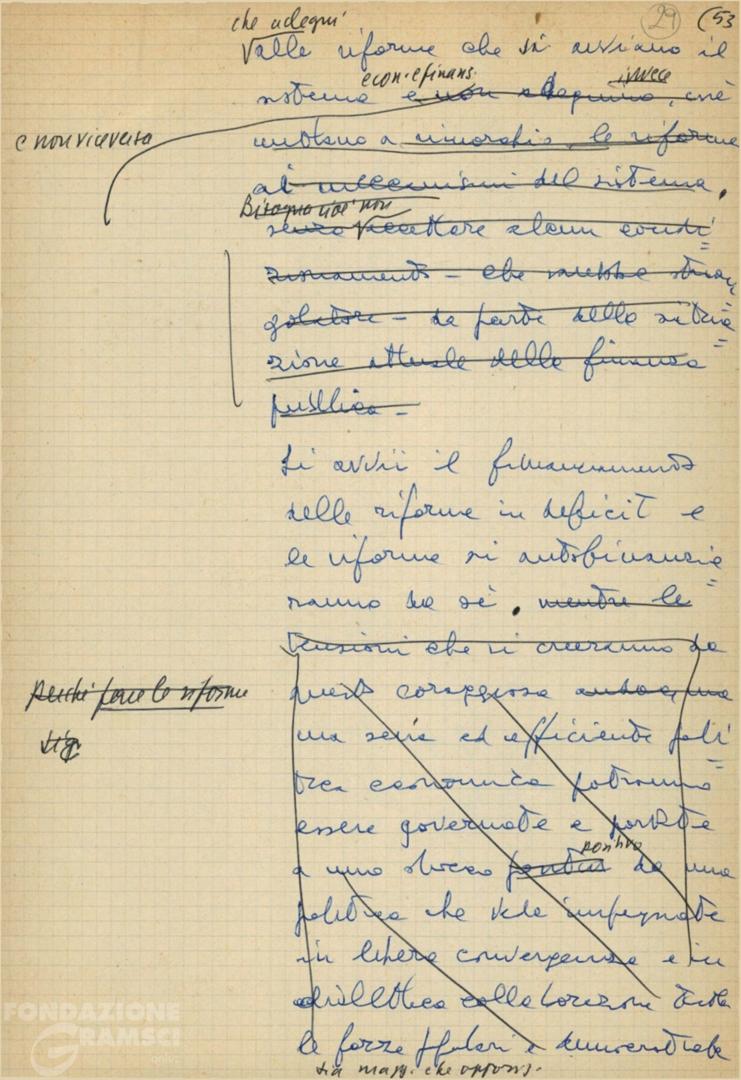 29 (53
che adegui
alle riforme che si avviano il
econ. e finanz. invece
sistema e non adeguino, cioè
e non viceversa
mettano a rimorchio, le riforme
ai meccanismi del sistema,
Bisogna cioè non
senza accettare alcun condi=
zionamento - che sarebbe stran=
golatore - da parte della situa=
zione attuale della finanza
pubblica -
Si avvii il finanziamento
delle riforme in deficit e
le riforme si autofinanzie=
ranno da sé. mentre le
tensioni che si creeranno da
perché fare le riforme
questa coraggiosa
una seria ed efficiente poli=
tica economica potranno
essere governate e portate
positivo
a uno sbocco da una
politica che veda impegnate
in libera convergenza e in
dialettica collaborazione tutte
le forze popolari e democratiche
sia magg. che oppos.
FONDAZIONE
GRAMSCI
onlus